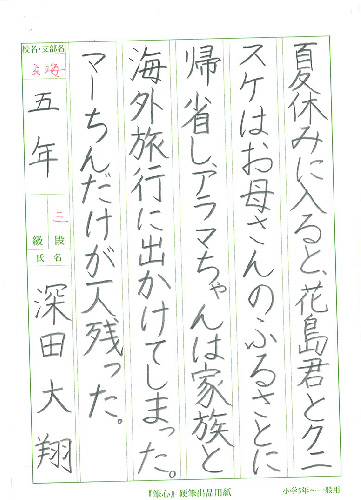 夏休みに入ると、花島君とクニ
スケはお母さんのふるさとに
帰省し、アラマちゃんは家族と
海外旅行に出かけてしまった。
マーちんだけが一人残った。
校名・支部名
五年
三
段
級
氏名
深田大翔
『筆心』硬筆出品用紙
小学5年~一般用